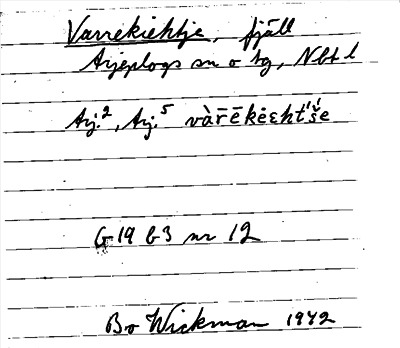 Varrekiektje, fjäll
Arjeplogs sn o tg, Nbt l
Arj.², Arj.⁵ và̄r̄ēkėεht́'š́e
G 19 b 3 nr 12
Bo Wickman 1942